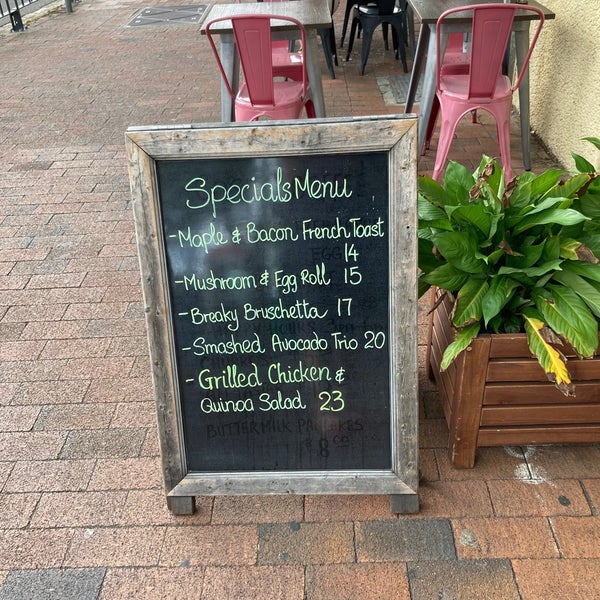 Specials Menu
- Maple & Bacon French Toast
14
- Mushroom & Egg Roll 15
- Breaky Bruschetta 17
- Smashed Avocado Trio 20
- Grilled Chicken &
Quinoa Salad 23
BUTTERMILK PANCAKES